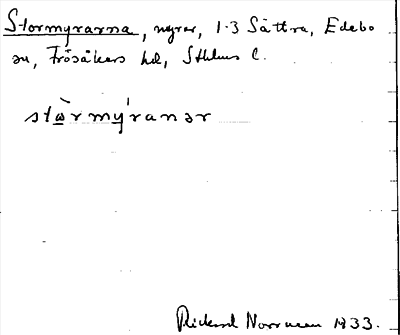 Stormyrarna, myrar, 1-3 Sättra, Edebo
sn, Frösåkers hd, Sthlms l.
stàrmy'ranər
Rickard Norrman 1933.